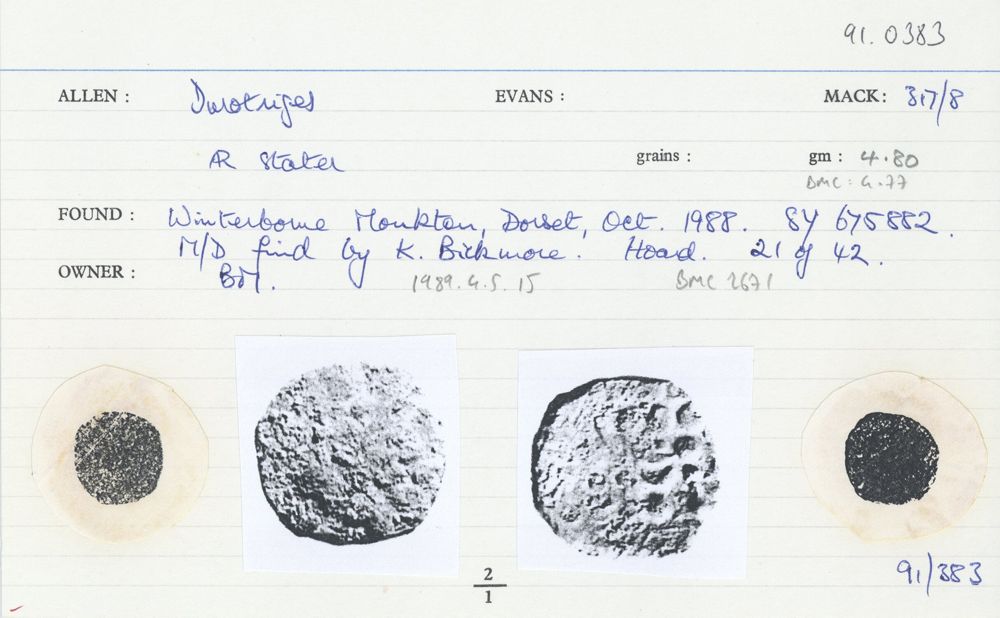 91.0383
ALLEN : Durotriges EVANS : MACK: 317/8
AR Stater grains : gm : 4.80
BMC: 4.77
FOUND : Winterborne Monkton, Dorset, Oct. 1988. SY 675882.
M/D find by K. Bickmore. Hoard. 21 of 42.
OWNER : BM. 1989.4.5.15 BMC 2671
2
1
91/383